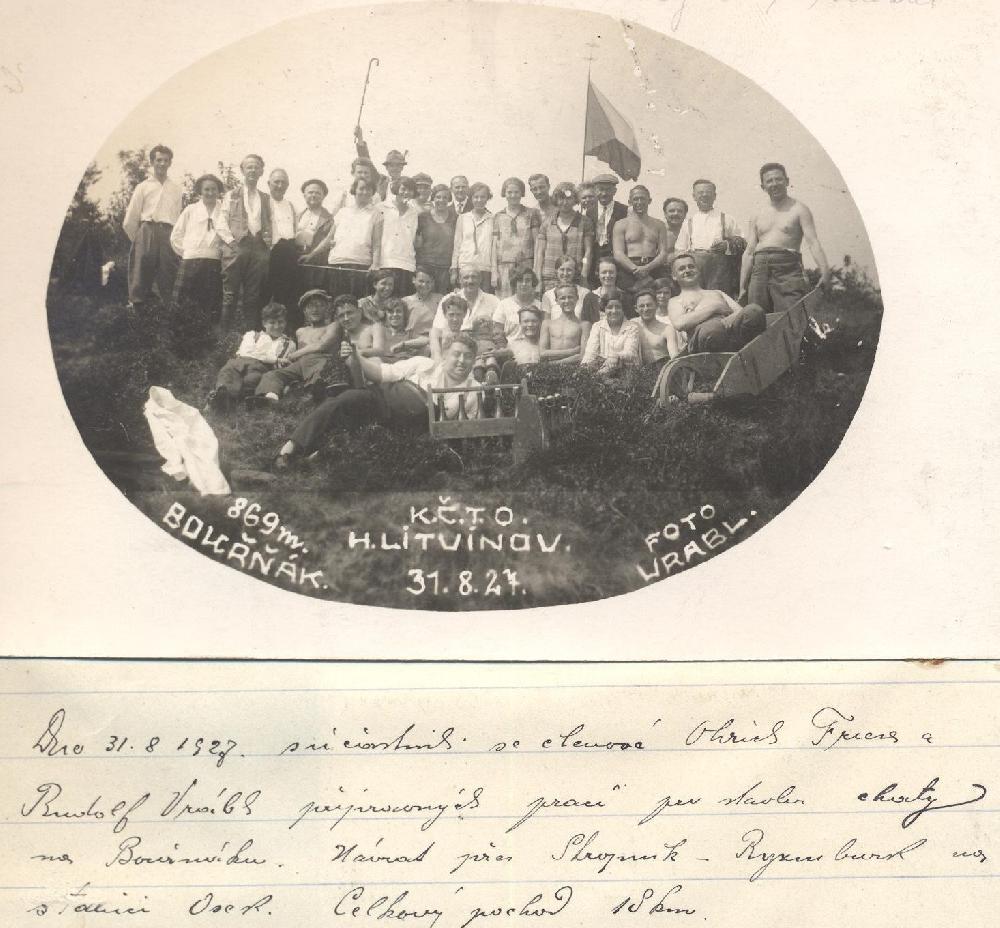 869m.
BOUŘŇÁK.
K.Č.T.O.
H.LITVÍNOV.
31.8.27.
FOTO
VRÁBL.
Dne 31. 8 1927. súčastnili se členové Oldřich Fricea a
Rudolf Vrábl přípravných prací pro stavbu chaty
na Bouřňáku. Návrat přes Stropník – Ryzmburk na
stanici Osek. Celkový pochod 18 km.